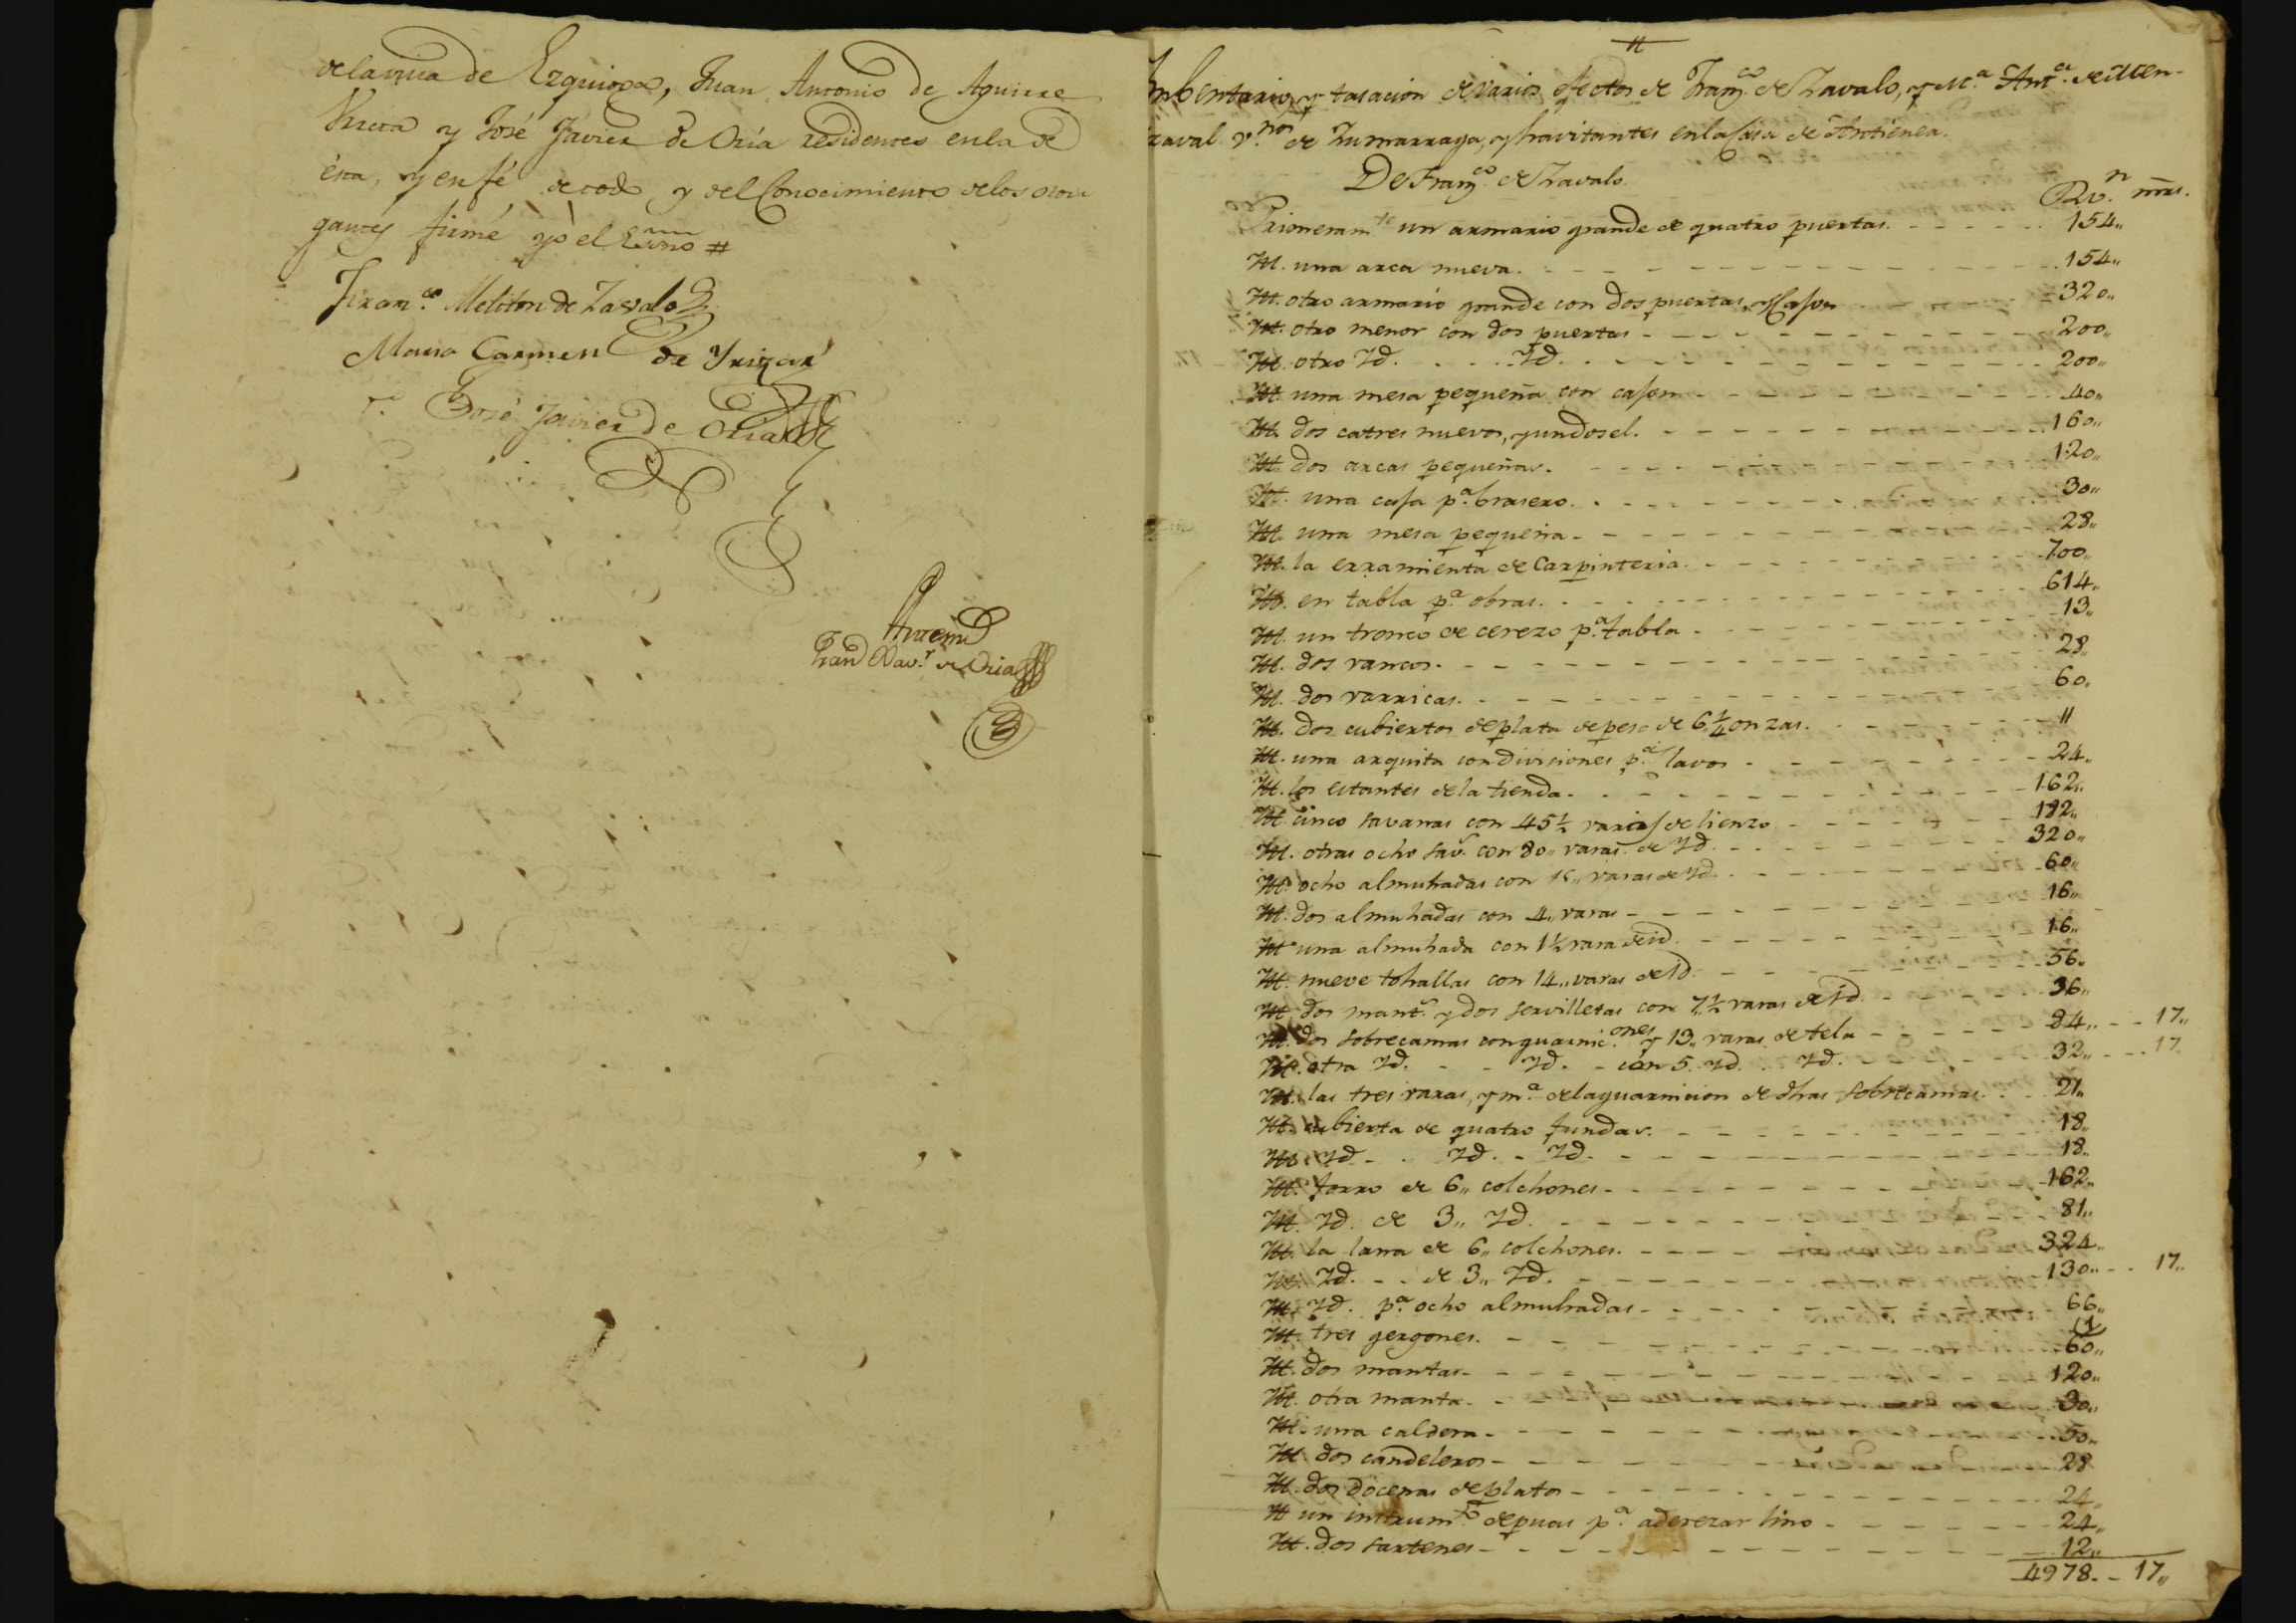 dela villa de Ezquioga, Juan Antonio de Aguirre
Urreta y José Javier de Oria residentes en la de
ésta, y en fé de todo y del Conocimiento de los otor
gantes firmé yo el Esno #
Fran.co Meliton de Zavalo
Maria Carmen de Yrizar
José Javier de Oria
Antemi
Fran Xav.r de Oria
Inbentario, y tasacion de varios efectos de Fran.co de Zavalo, y M.a Ant.a de Men-
zaval v.nos de Zumarraga, y havitantes enla Casa de Antienea.
De Fran.co de Zavalo.
R.n mrs.
Primeram.te un armario grande de quatro puertas. 154,,
Yt. una arca nueva. 154,,
Yt. otro armario grande con dos puertas, y Cajon 320,,
Yt. otro menor con dos puertas 200,,
Yt. otro Yd. Yd. 200,,
Yt. una mesa pequeña con cajon 40,,
Yt. dos catres nuevos, y un dosel. 160,,
Yt. dos arcas pequeñas. 120,,
Yt. una caja p.a brasero. 30,,
Yt. una mesa pequeña 28,,
Yt. la erramienta de Carpinteria. 700,,
Yt. en tabla p.a obras. 614,,
Yt. un tronco de cerezo p.a tabla 13,,
Yt. dos vancos. 28,,
Yt. dos varricas. 60,,
Yt. dos cubiertos de plata de peso de 6 1/4 onzas. 11
Yt. una arquita con divisiones p.a clavos 24,,
Yt. los estantes dela tienda. 162,,
Yt. cinco savanas con 45 1/2 varas de lienzo 182,,
Yt. otras ocho sav.s con 80,, varas de Yd. 320,,
Yt. ocho almuhadas con 15,, varas de Yd. 60,,
Yt. dos almuhadas con 4,, varas 16,,
Yt. una almuhada con 1 1/2 vara de id. 16,,
Yt. nueve tohallas con 14,, varas de Yd. 56,,
Yt. dos mant.s y dos servilletas con 7 1/2 varas de Yd. 36,,
Yt. dos sobrecamas con guarnic.ones y 13,, varas de tela 84,, 17,,
Yt. otra Yd. Yd. con 5 Yd. Yd. 32,, 17
Yt. las tres varas, y m.a dela guarnicion de dhas sobrecamas. 21,,
Yt. cubierta de quatro fundas. 18,,
Yt. Yd. Yd. Yd. 18,,
Yt. forro de 6,, colchones 162,,
Yt. Yd. de 3,, Yd. 81,,
Yt. la lana de 6,, colchones. 324,,
Yt. Yd. de 3,, Yd. 130,, 17,,
Yt. Yd. p.a ocho almuhadas 66,,
Yt. tres gergones. 60,,
Yt. dos mantas 120,,
Yt. otra manta 30,,
Yt. una caldera 50,,
Yt. dos candeleros 28
Yt. dos docenas de platos 24,,
Yt. un instrum.to de puas p.a aderezar lino 24,,
Yt. dos sartenes 12,,
4978. 17,,